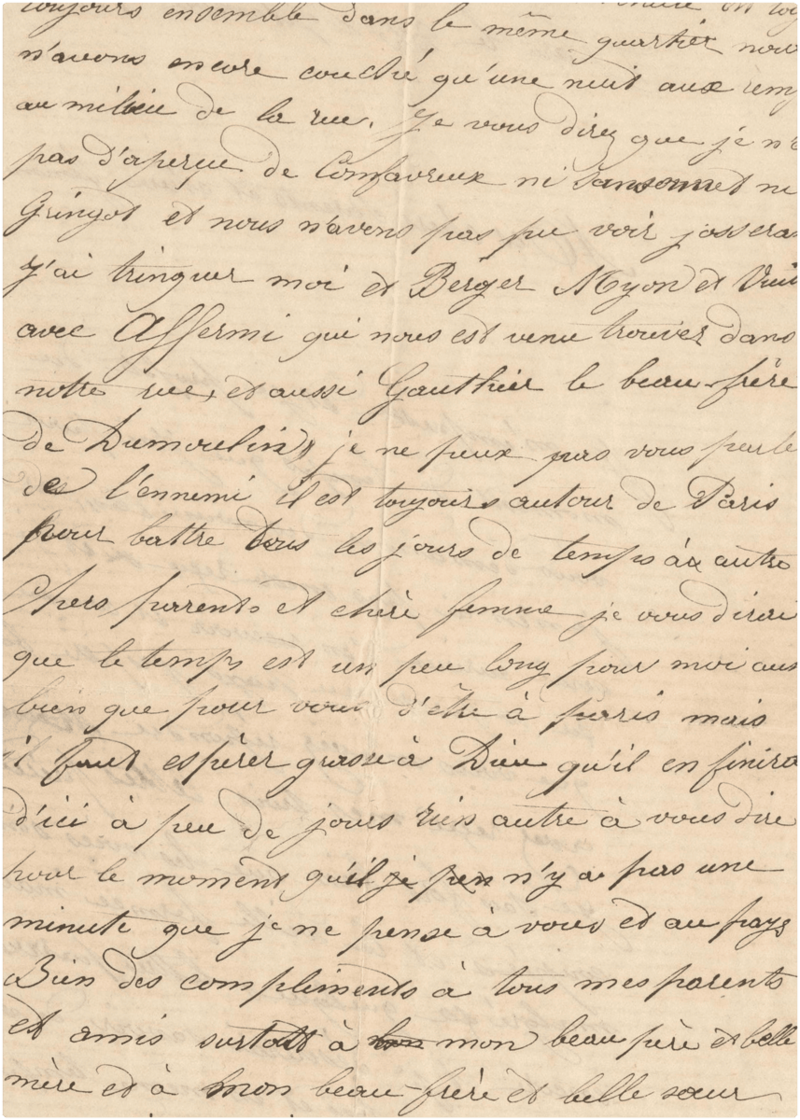 toujours ensemble dans le même quartier nous
n'avons encore couché qu'une nuit aux remp
au milieu de la rue. Je vous direz que je n'e
pas d'aperçue de Confavreux ni Sansonnet ni
Gringot et nous n'avons pas pu voir jossera
J'ai tringuer moi et Berger Myon et
avec Affermi qui nous est venu trouver dans
notre rue, et aussi Gauthier le beau-frère
de Dumoulin je ne peux pas vous parle
de l'ennemi il est toujours autour de Paris
pour battre tous les jours de temps à autre
Chers parrents et chère femme je vous dirai
que le temps est un peu long pour moi aus
bien que pour vous d'être à paris mais
il faut espérer grasse à Dieu qu'il en finira
d'ici à peu de jours rien autre à vous dire
pour le moment qu'il je pen n'y a pas une
minute que je ne pense à vous et au pays
Bien des compliments à tous mes parents
et amis surtout à mon beau père et belle
mère et à mon beau-frère et belle sœur